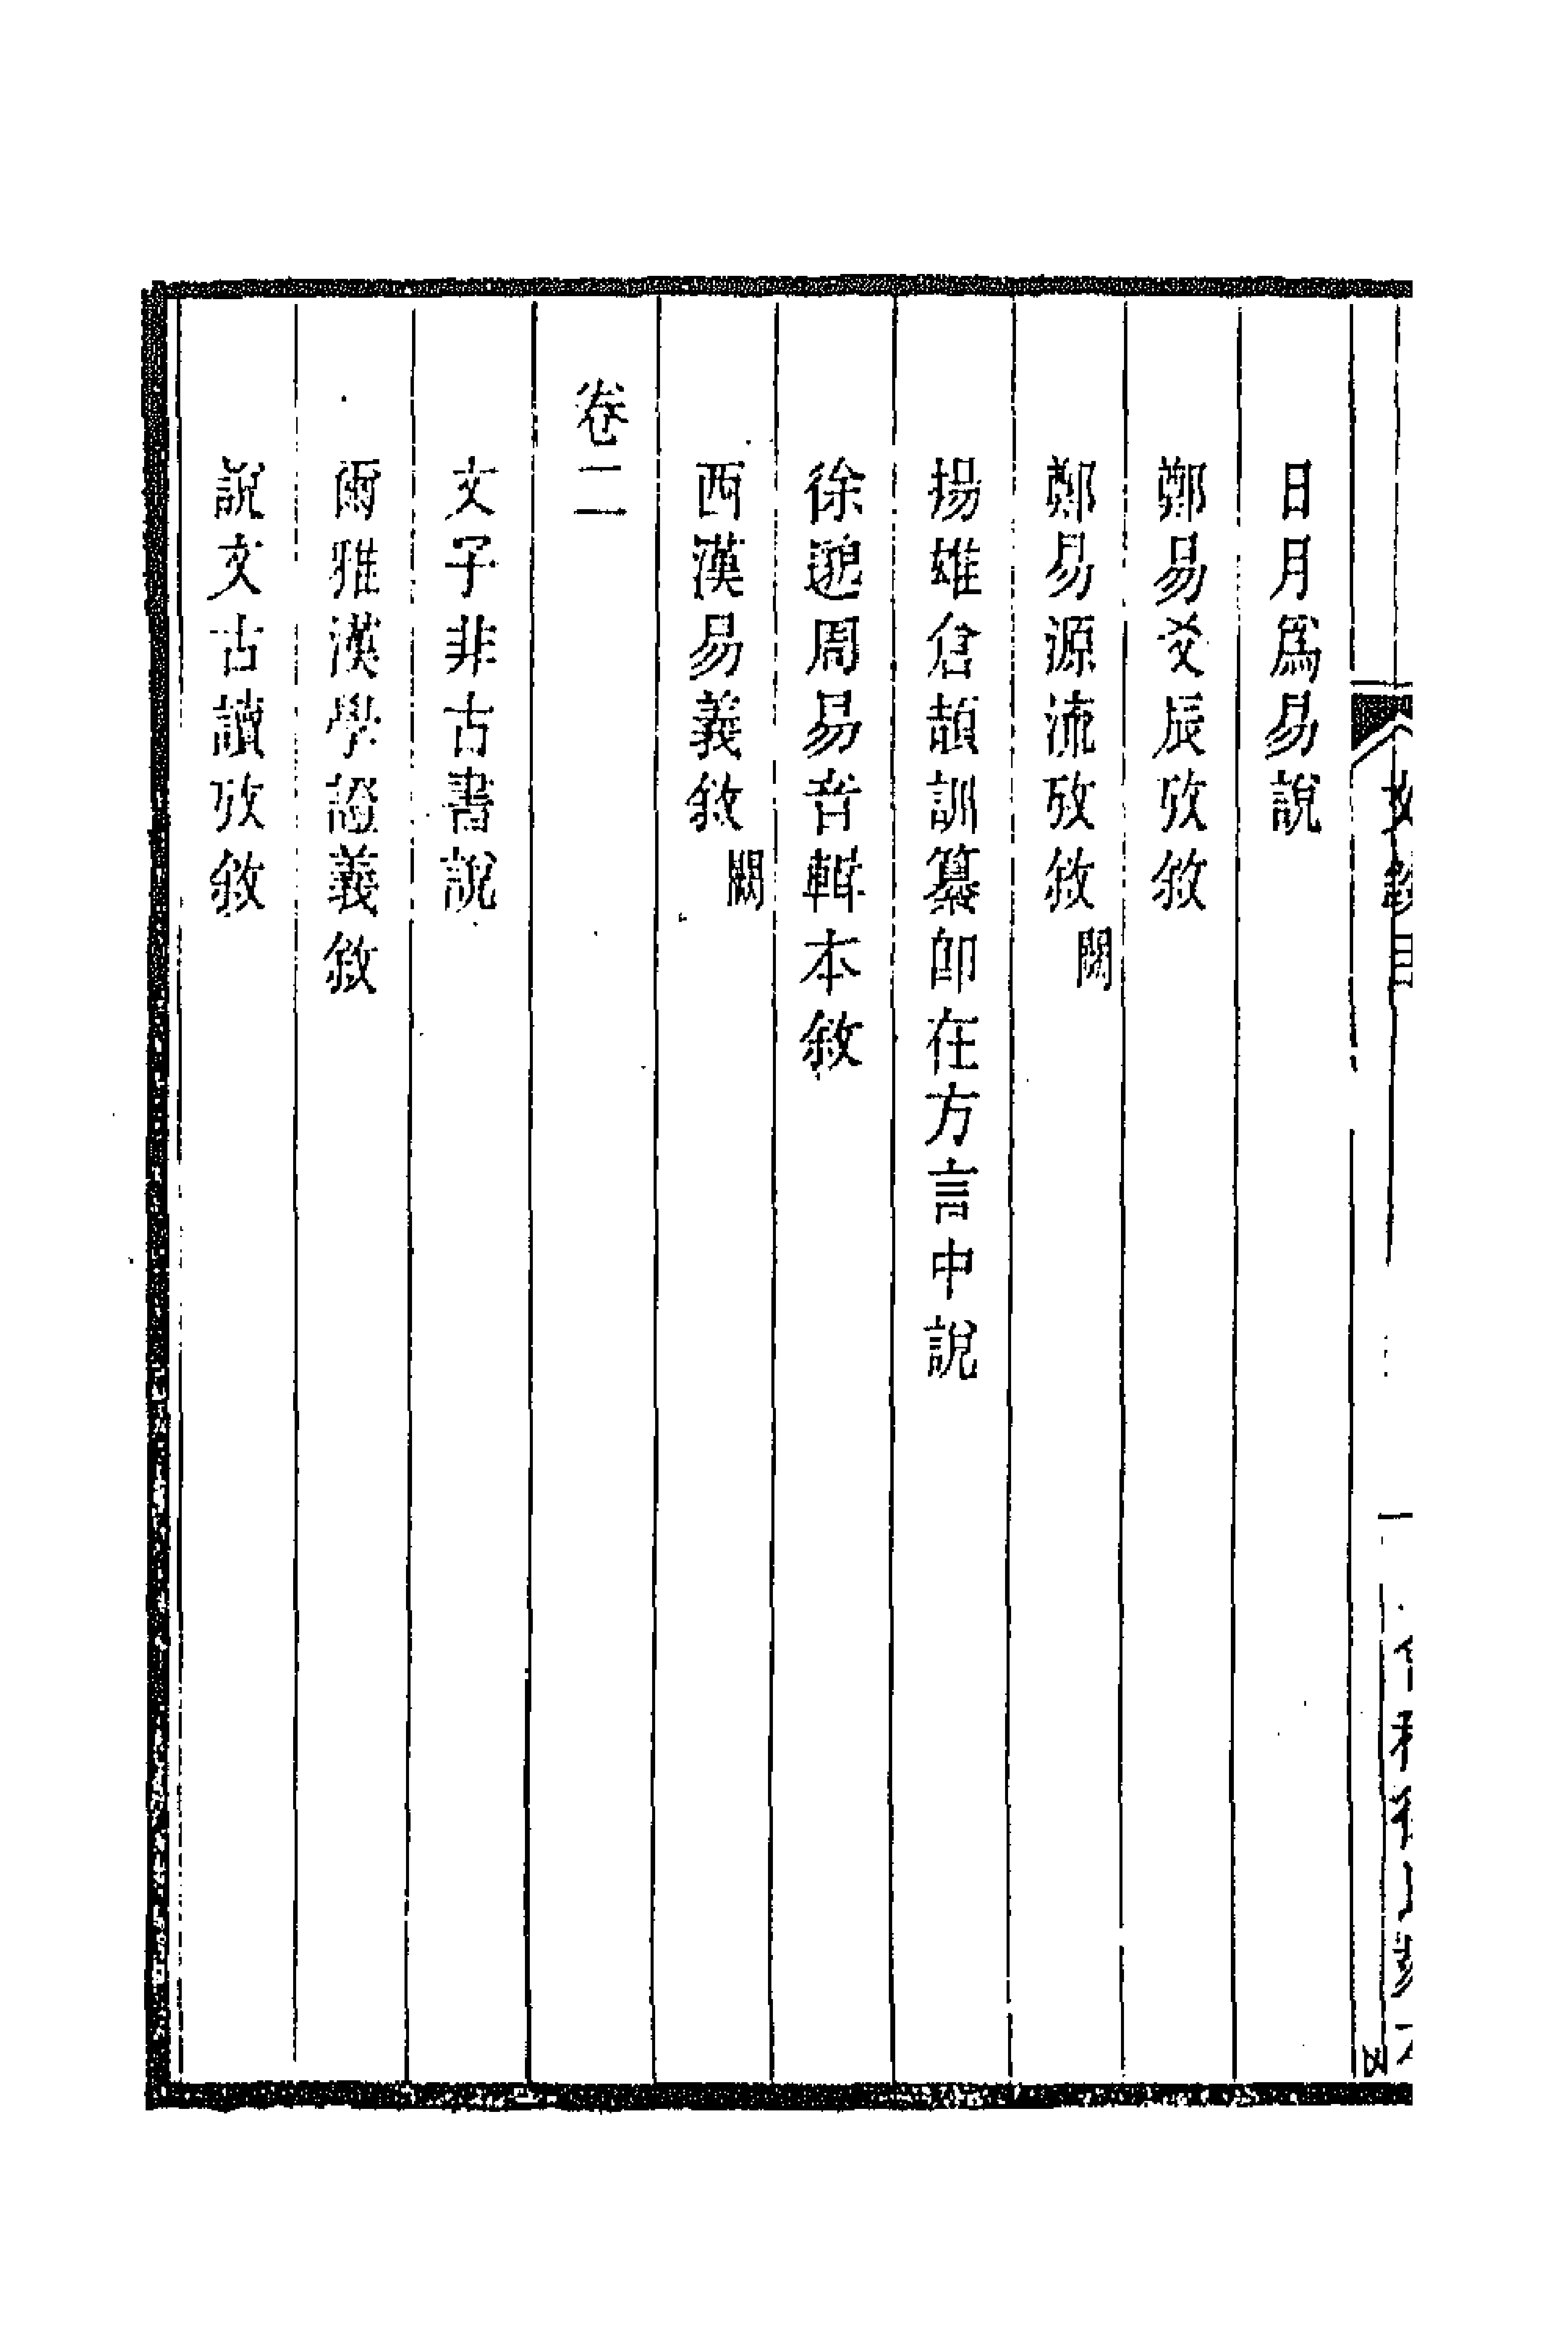 日月爲易說
鄭易爻辰攷敘
鄭易源流攷敘闕
揚雄倉頡訓纂卽在方言中說
徐邈周易音輯本敘
西漢易義敘闕
卷二
文子非古書說
爾雅漢學證義敘
說文古讀攷敘